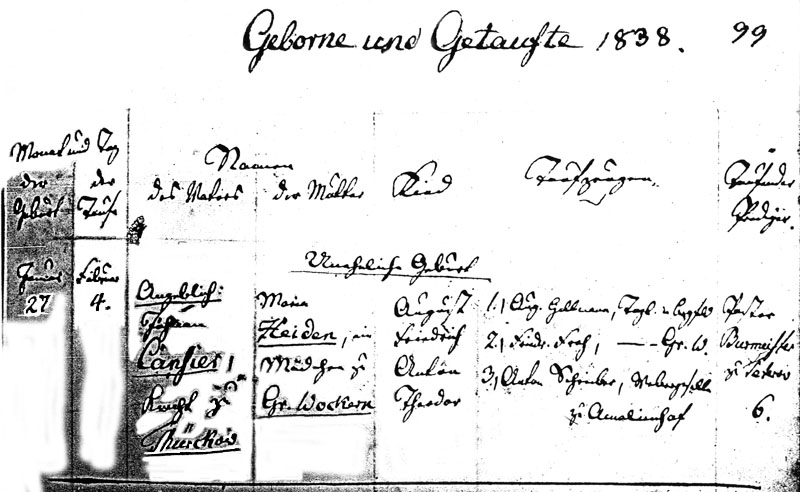 Geborne und Getaufte 1838. 99
Monat und Tag
der
Geburt
der
Taufe
Namen
des Vaters
der Mutter
Kind
Taufzeugen.
Taufender
Prediger.
Uneheliche Geburt
Januar
27
Februar
4.
Angeblich:
Johann
Cansier,
Knecht zu
Thürckow
Maria
Heiden, ein
Mädchen zu
Gr. Wockern
August
Friedrich
Anton
Theodor
1, Aug. Hellmann, Tagl.
2, Friedr. Froh, — Gr. W.
3, Anton Schreiber, Webergesell
zu Amalienhof
Pastor
Burmeister
zu Teterow
6.